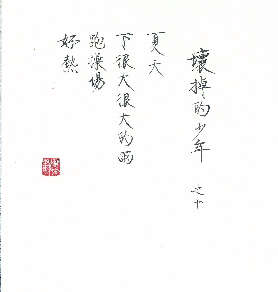 壞掉的少年 之十
夏天
下很大很大的雨
跑操場
好熱